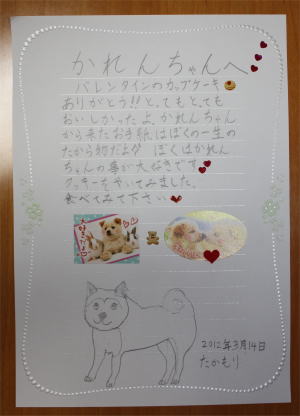 かれんちゃんへ
バレンタインのカップケーキ
ありがとう!!と、てもと、ても
おいしかったよ。かれんちゃん
から来たお手紙はぼくの一生の
たから物だよ。ぼくはかれん
ちゃんの事が大好きです
クッキーをやいてみました。
食べてみて下さい
2012年3月14日
たかもり